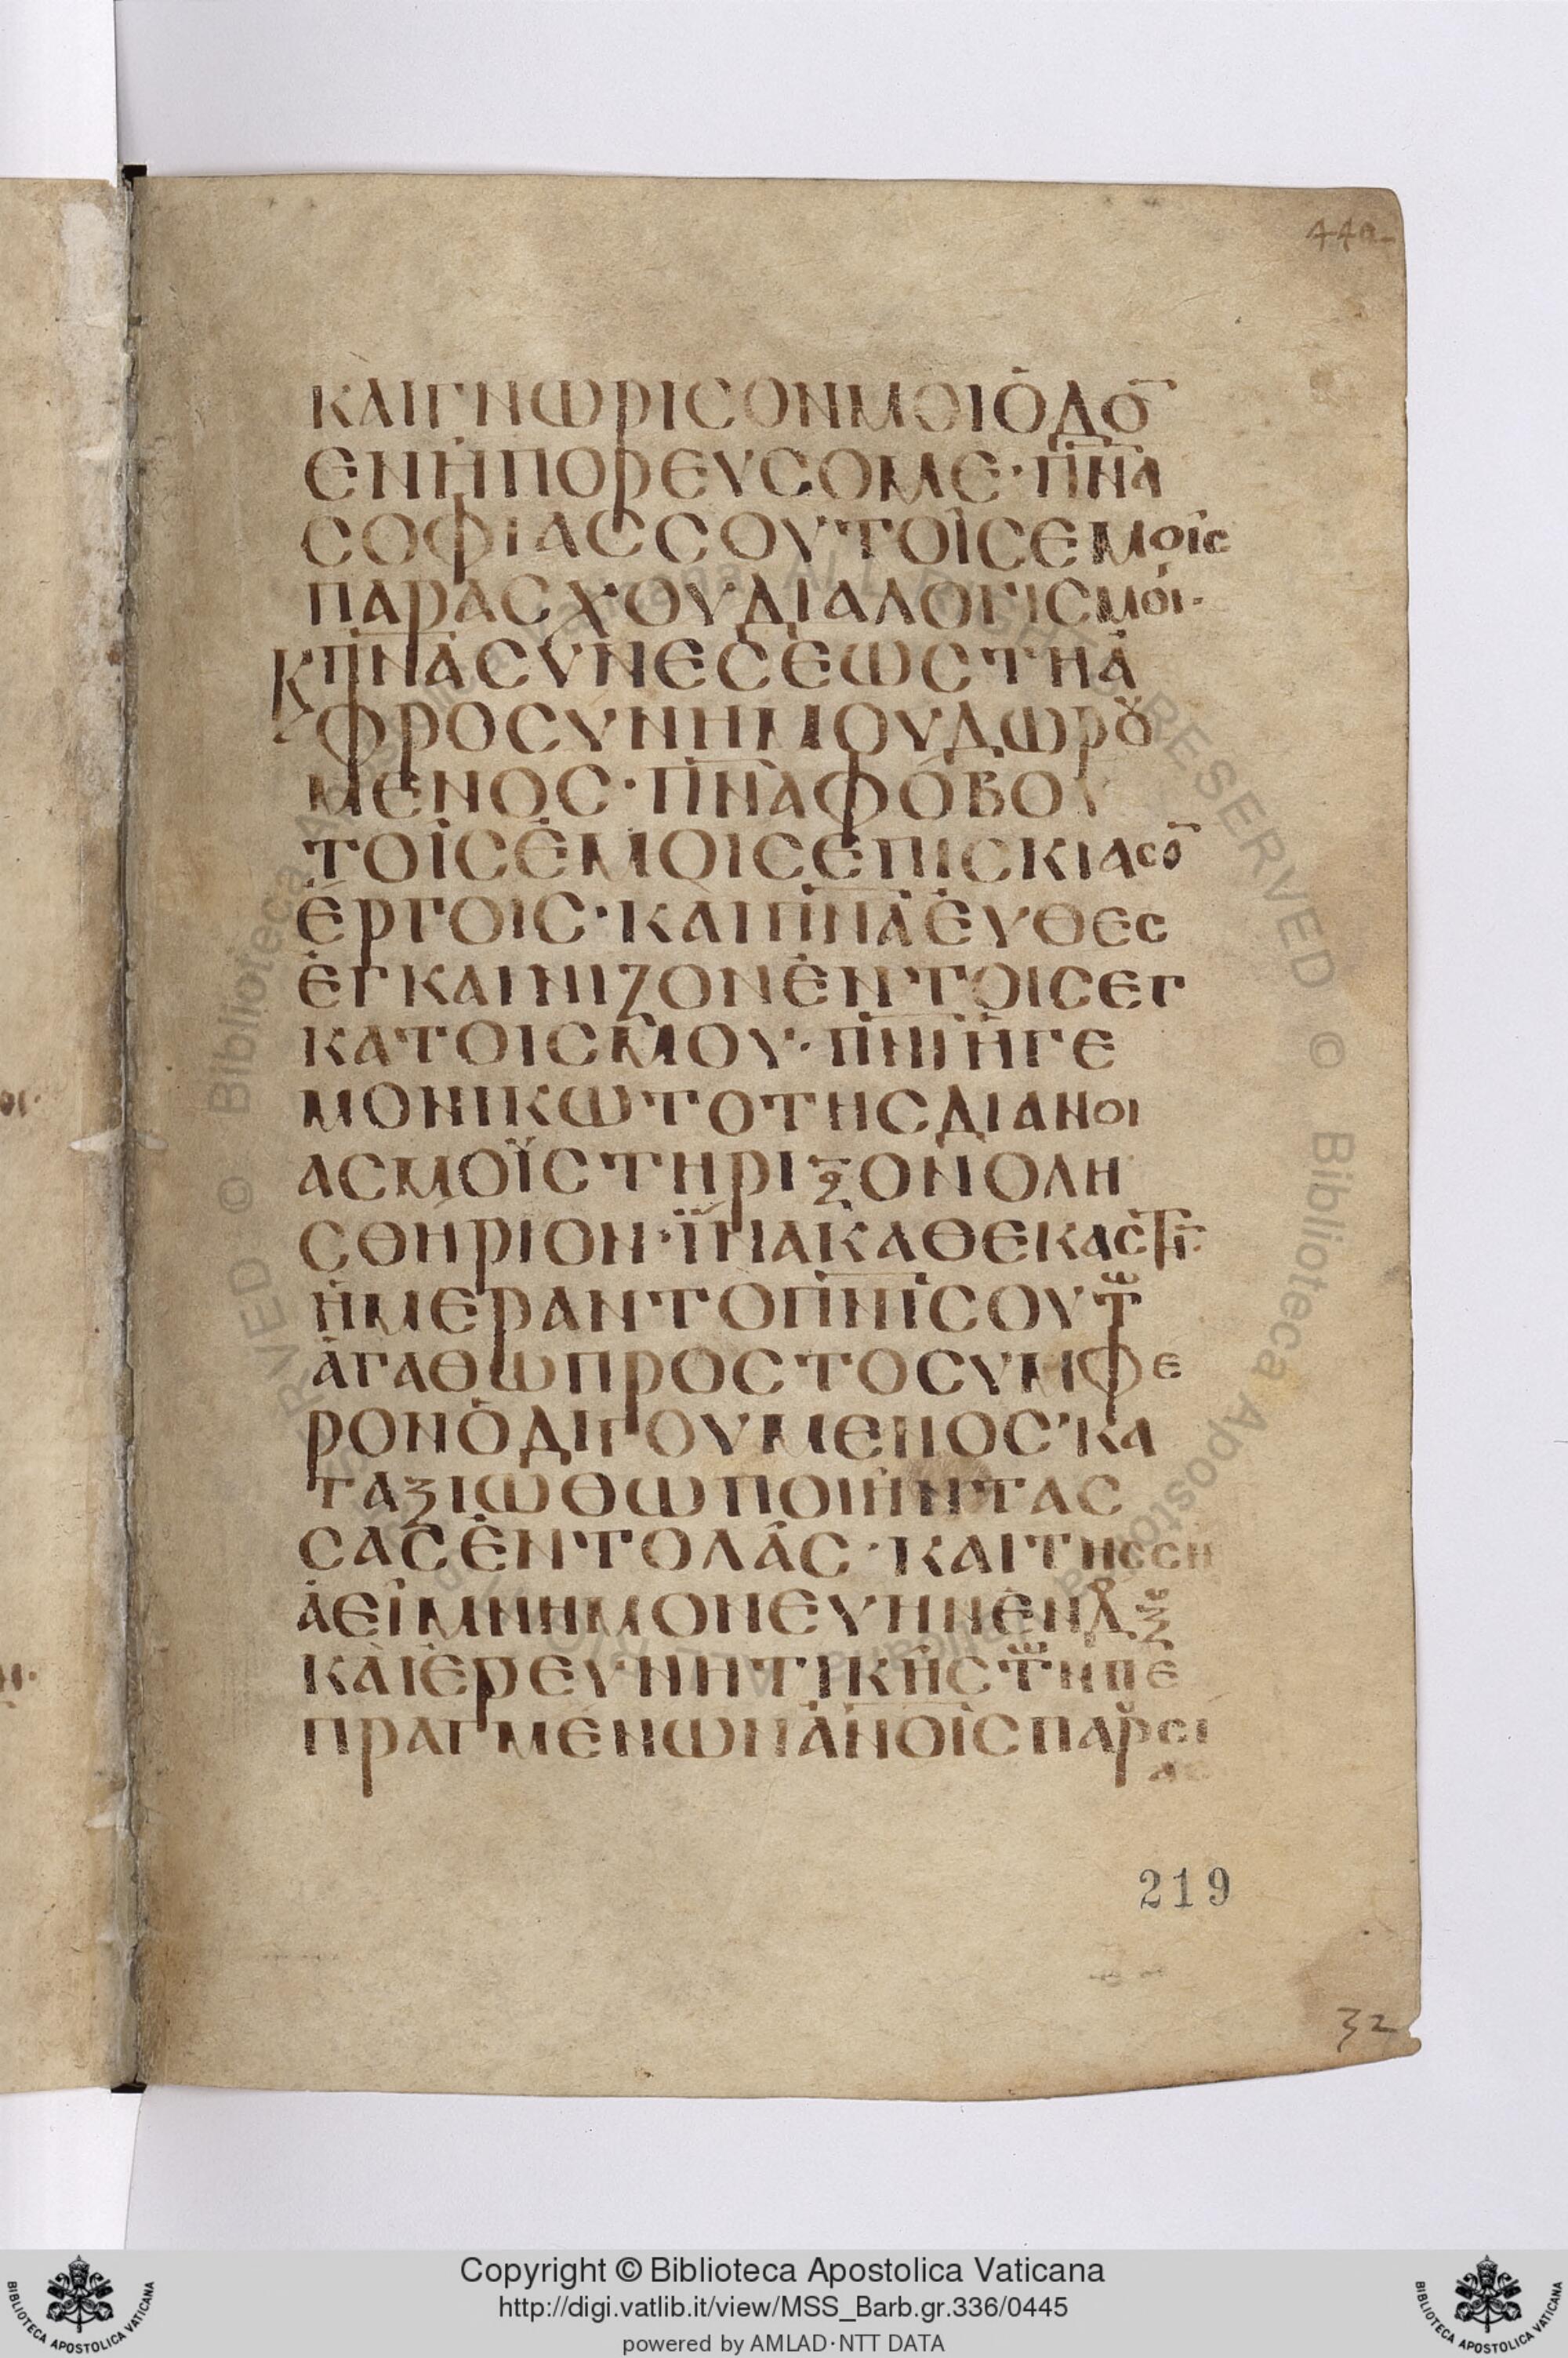 44a
ΚΑΙΓΝΩΡΙϹΟΝΜΟΙὉΔΟ̅
ΕΝΗΠΟΡΕΥϹΟΜΕ·Π̅Ν̅Α
ϹΟΦΙΑϹϹΟΥΤΟΙϹΕΜΟΙϹ
ΠΑΡΑϹΧΟΥΔΙΑΛΟΓΙϹΜΟΙ·
ΚΠ̅Ν̅ΑϹΥΝΕϹΕΩϹΤΗΑ
ΦΡΟϹΥΝΗΜΟΥΔΩΡȣ
ΜΕΝΟϹ·Π̅Ν̅ΑΦΟΒΟΥ
ΤΟΙϹΕΜΟΙϹΕΠΙϹΚΙΑϹΟ̅
ΕΡΓΟΙϹ·ΚΑΙΠ̅Ν̅ΑΕΥΘΕϹ
ΕΓΚΑΙΝΙΖΟΝΕΝΤΟΙϹΕΓ
ΚΑΤΟΙϹΜΟΥ·Π̅Ν̅ΙΗΓΕ
ΜΟΝΙΚΩΤΟΤΗϹΔΙΑΝΟΙ
ΑϹΜΟΪϹΤΗΡΙΞΟΝΟΛΗ
ϹΘΗΡΙΟΝ·ΪΝΑΚΑΘΕΚΑϹΤΗ
ΗΜΕΡΑΝΤΟΠ̅Ν̅ΙϹΟΥΤ
ΑΓΑΘΩΠΡΟϹΤΟϹΥΜΦΕ
ΡΟΝΟΔΙΓΟΥΜΕΝΟϹΚΑ
ΤΑΞΙΩΘΩΠΟΙΗΝΤΑϹ
ϹΑϹΕΝΤΟΛΑϹ·ΚΑΙΤΗϹϹΗ
ΑΕΙΜΝΗΜΟΝΕΥΗΝΕΝΔΞ
ΚΑΙΕΡΕΥΝΗΤΙΚΗϹΤΗΠΕ
ΠΡΑΓΜΕΝΩΝΑΝΟΙϹΠΑΡϹΙ
219
32
Copyright © Biblioteca Apostolica Vaticana
http://digi.vatlib.it/view/MSS_Barb.gr.336/0445
powered by AMLAD·NTT DATA